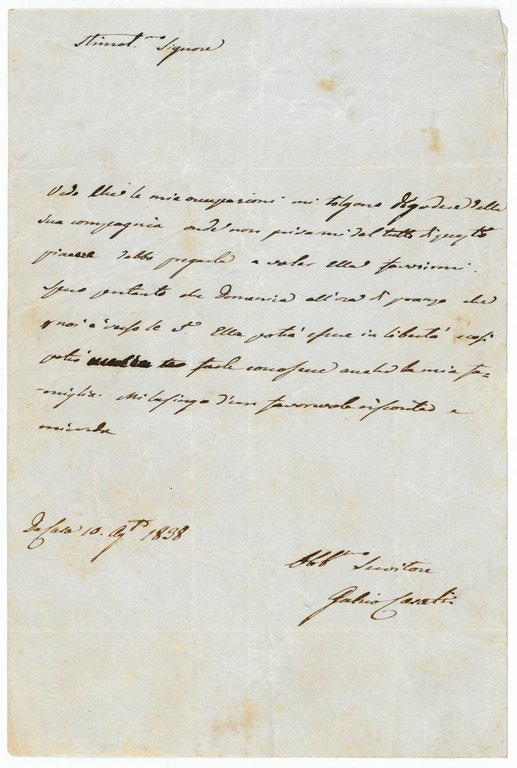 Stimat.mo Signore
Vedo che le mie occupazioni mi tolgono di godere della
sua compagnia onde non privarmi del tutto di questo
piacere debbo pregarla a voler ella favorirmi.
Spero pertanto che Domenica all'ora di pranzo che
p noi è verso le 5. Ella potrà essere in libertà e così
potrò farle conoscere anche la mia fa-
miglia. Mi lusingo d'un favorevole riscontro e
mi creda
Da Casa 10. Ag.to 1838
Obb.mo Servitore
Gabrio Casati